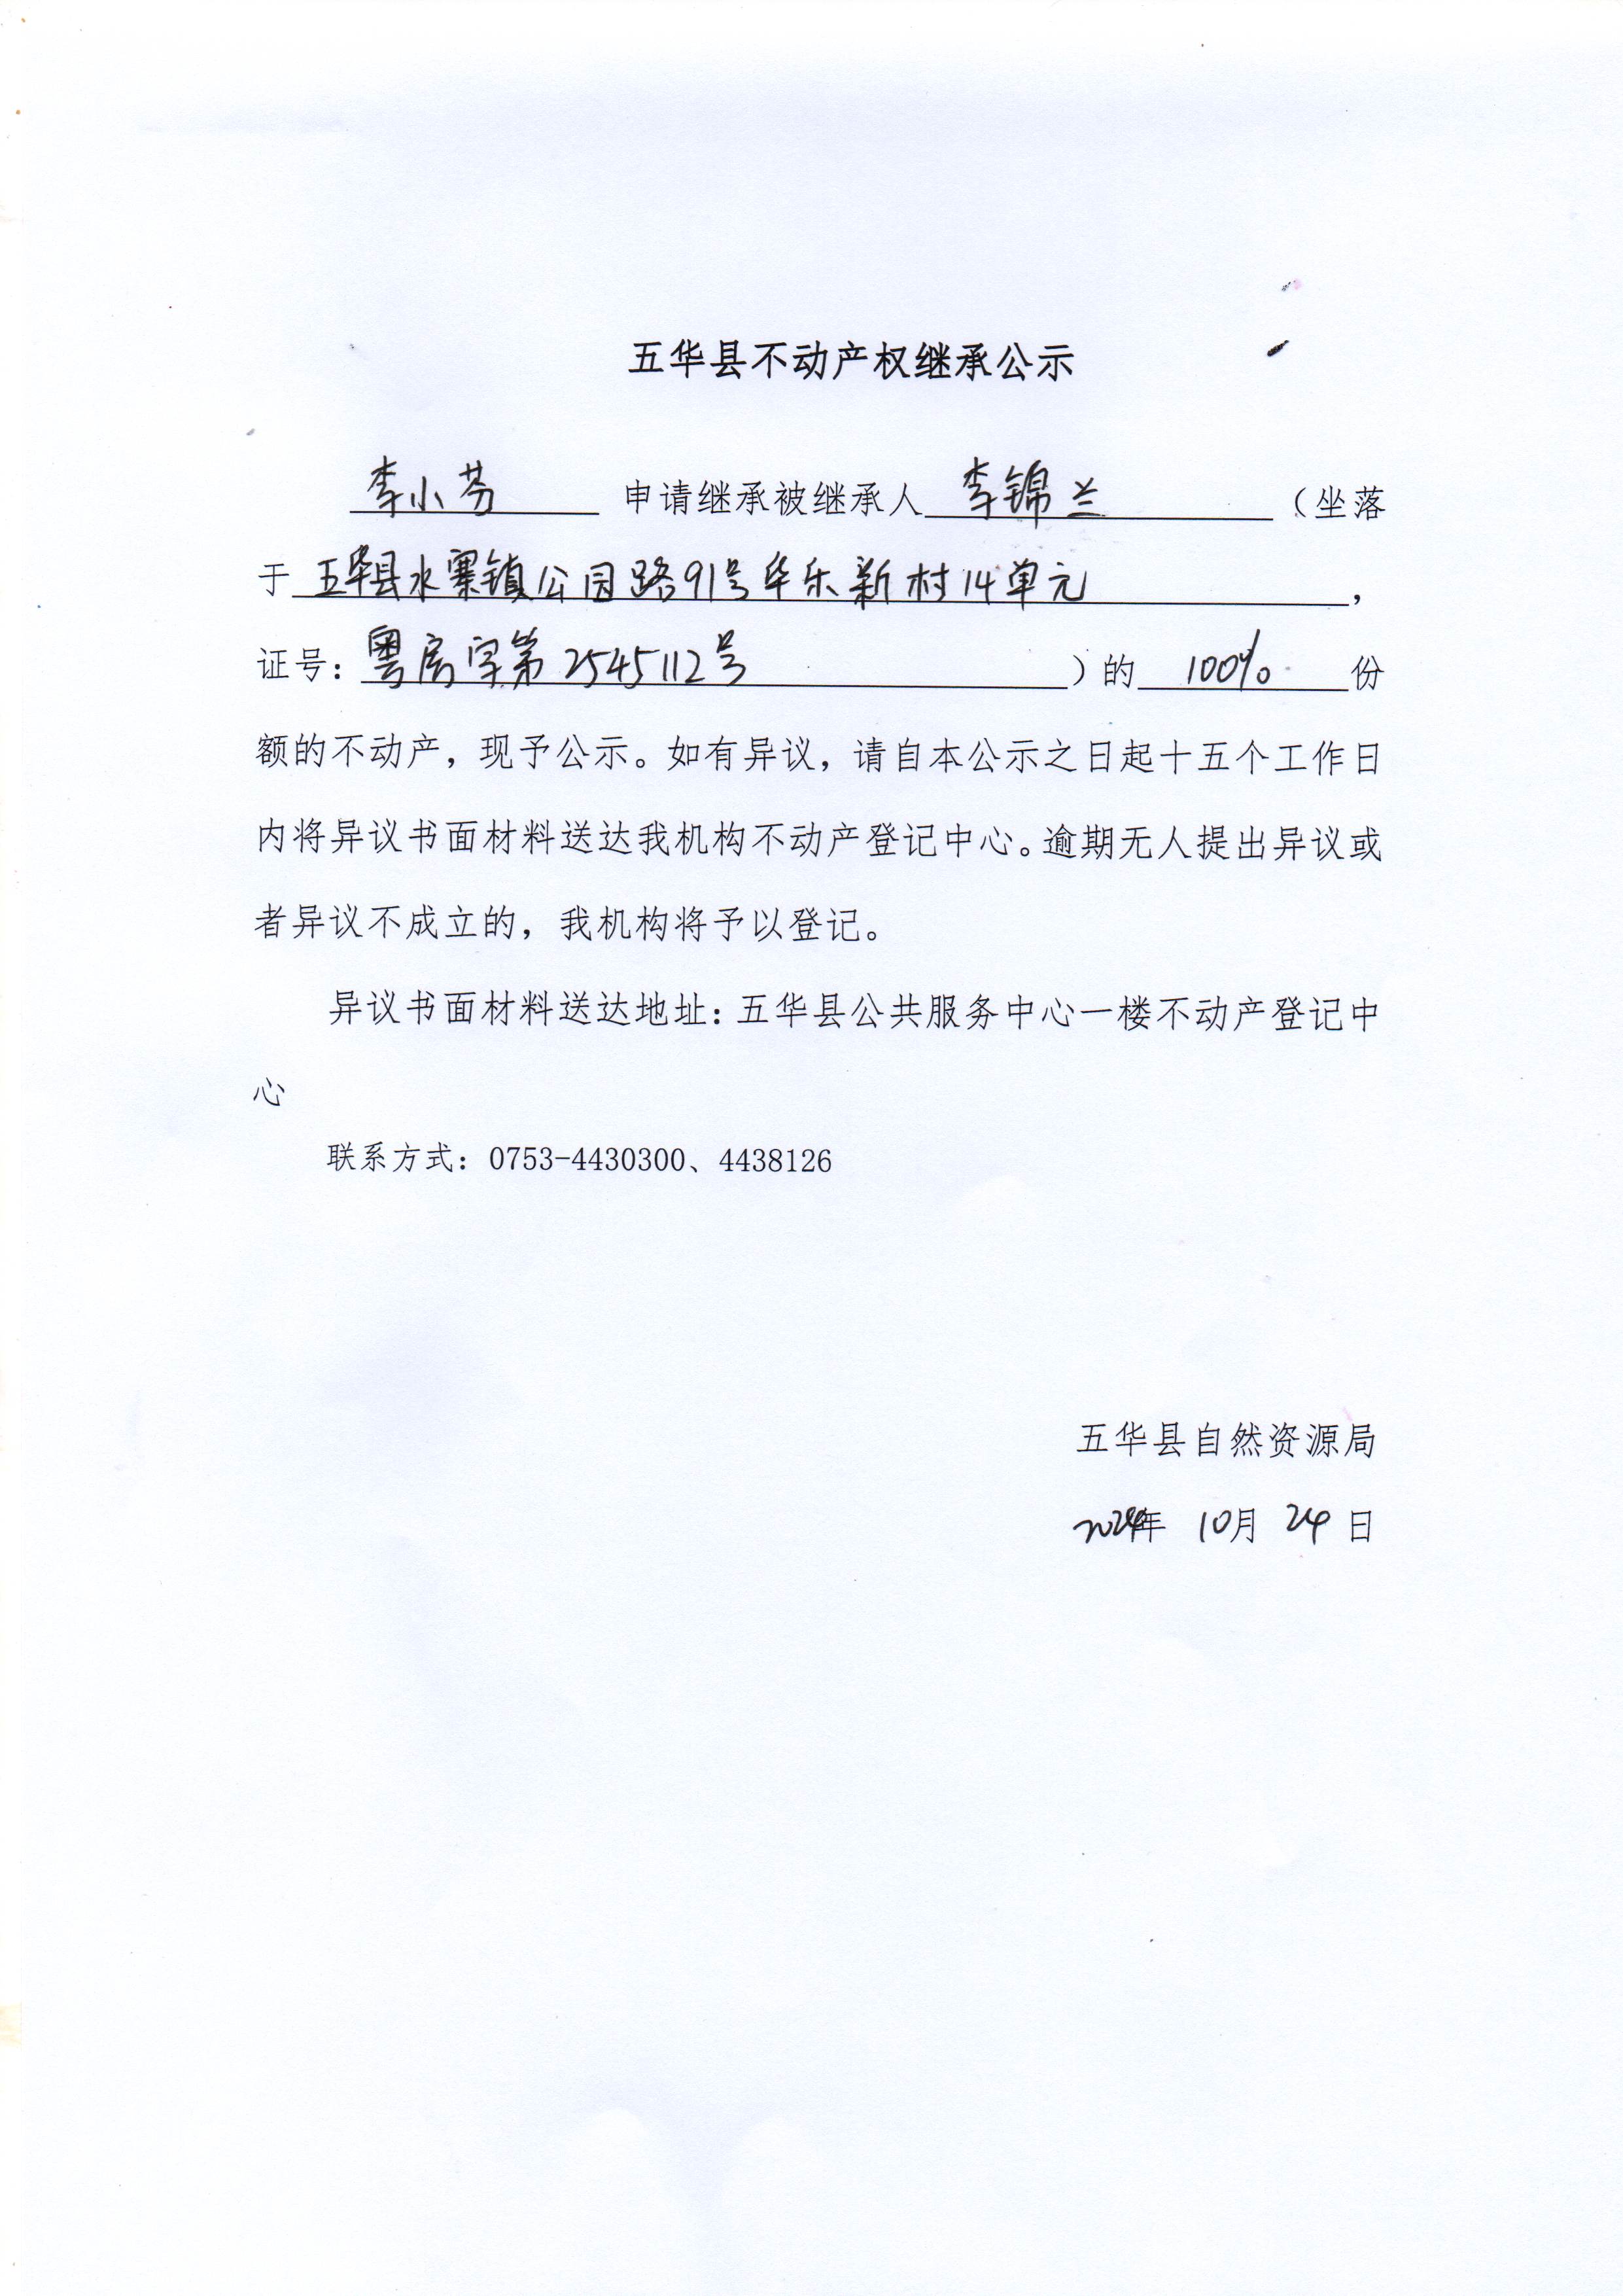 五华县不动产权继承公示
李小芬 申请继承被继承人李锦兰（坐落
于五华县水寨镇公园路91号华乐新村14单元，
证号：粤房字第2545112号）的100%份
额的不动产，现予公示。如有异议，请自本公示之日起十五个工作日
内将异议书面材料送达我机构不动产登记中心。逾期无人提出异议或
者异议不成立的，我机构将予以登记。
异议书面材料送达地址：五华县公共服务中心一楼不动产登记中
心
联系方式：0753-4430300、4438126
五华县自然资源局
2024年 10月 24日